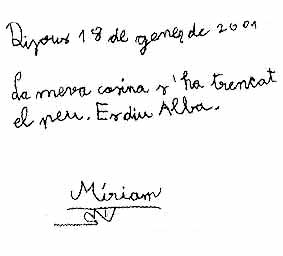 Dijous 18 de gener de 2001
La meva cosina s'ha trencat
el peu. Es diu Alba.
Míriam